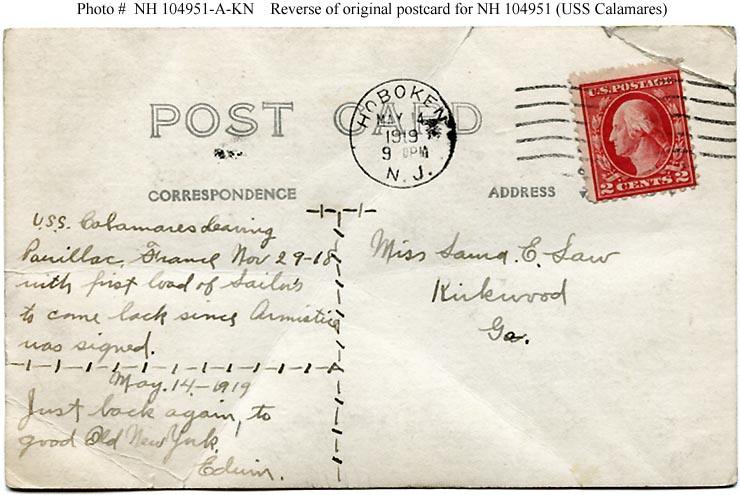 Photo # NH 104951-A-KN Reverse of original postcard for NH 104951 (USS Calamares)
POST CARD
HOBOKEN
MAY 14
1919
9 PM
N. J.
U.S. POSTAGE
2 CENTS 2
CORRESPONDENCE
ADDRESS
U.S.S. Calamares leaving
Pauillac, France Nov 29-18
with first load of Sailors
to come back since Armistice
was signed.
May. 14-1919
Just back again, to
good Old New York.
Edwin.
Miss E. Law
Kirkwood
Ga.